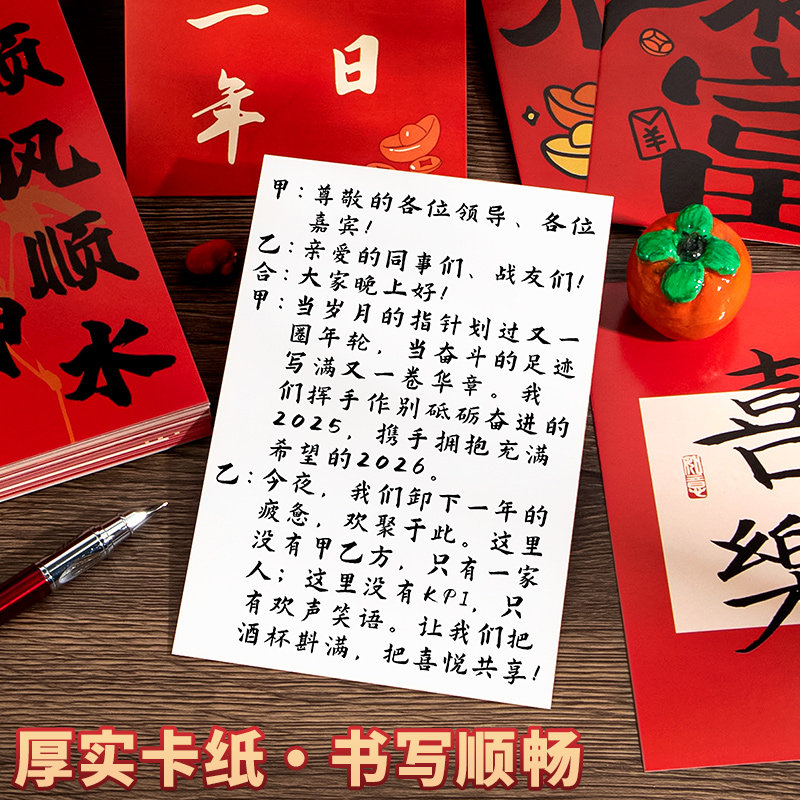 顺风顺水
一年
日
富
甲：尊敬的各位领导、各位
嘉宾！
乙：亲爱的同事们、战友们！
合：大家晚上好！
甲：当岁月的指针划过又一
圈年轮，当奋斗的足迹
写满又一卷华章。我
们挥手作别砥砺奋进的
2025，携手拥抱充满
希望的2026。
乙：今夜，我们卸下一年的
疲惫，欢聚于此。这里
没有甲乙方，只有一家
人；这里没有KPI，只
有欢声笑语。让我们把
酒杯斟满，把喜悦共享！
喜樂
厚实卡纸·书写顺畅